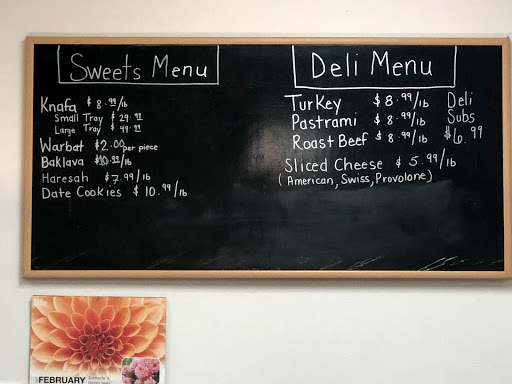 Sweets Menu
Knafa $8.99/lb
Small Tray $29.99
Large Tray $49.99
Warbat $2.00 per piece
Baklava $10.99/lb
Haresah $7.99/lb
Date Cookies $10.99/lb
Deli Menu
Turkey $8.99/lb
Pastrami $8.99/lb
Roast Beef $8.99/lb
Deli
Subs
$6.99
Sliced Cheese $5.99/lb
(American, Swiss, Provolone)
FEBRUARY